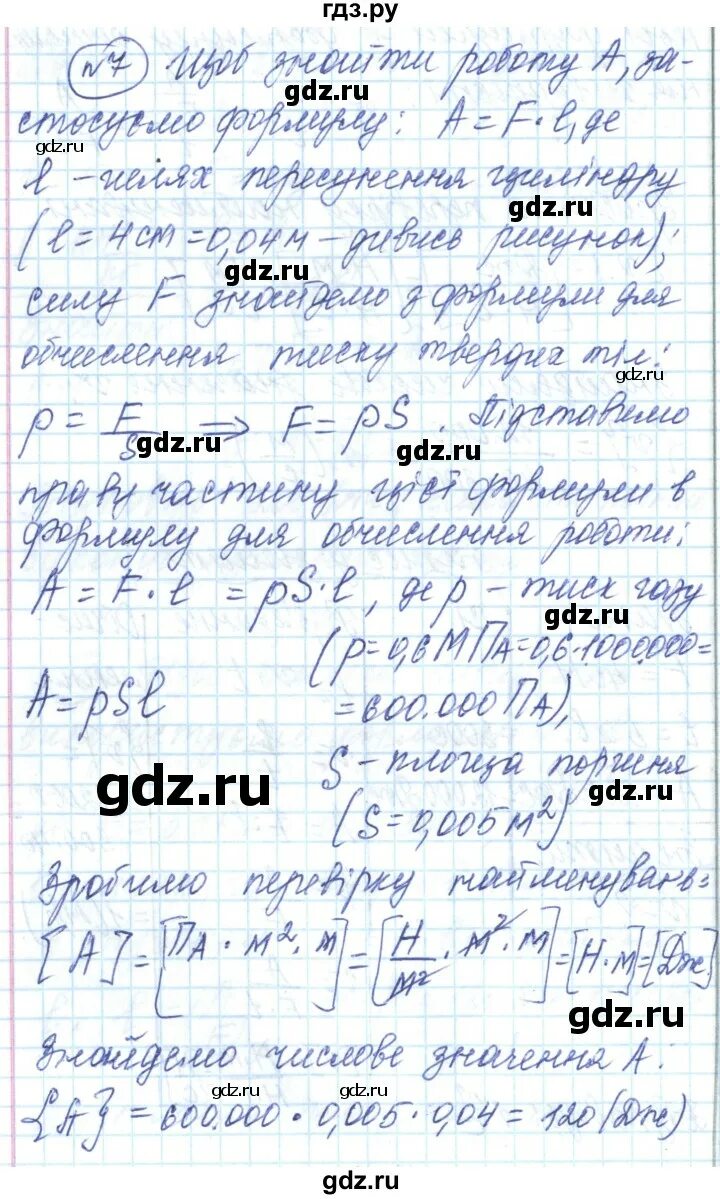 гдз.ру
№7 Щоб знайти роботу A, за-
gdz.ru
стосуємо формулу: A = F · l, де
gdz.ru
l – шлях пересунення циліндру
gdz.ru
(l = 4 см = 0,04 м – дивись рисунок);
gdz.ru
силу F знайдемо з формули для
обчислення тиску твердих тіл:
gdz.ru
p = F/S ⇒ F = pS. Підставимо
gdz.ru gdz.ru
праву частину цієї формули в
формулу для обчислення роботи:
A = F · l = pS · l, де p – тиск газу
(p = 0,6 МПа = 0,6 · 1000000 =
A = pSl = 600.000 Па),
gdz.ru
S – площа поршня
gdz.ru
(S = 0,005 м²)
Зробимо перевірку найменувань:
[A] = [Па · м² · м] = [Н/м² · м² · м] = [Н · м] = [Дж]
gdz.ru
Знайдемо числове значення A:
gdz.ru
{A} = 600.000 · 0,005 · 0,04 = 120 (Дж)
gdz.ru